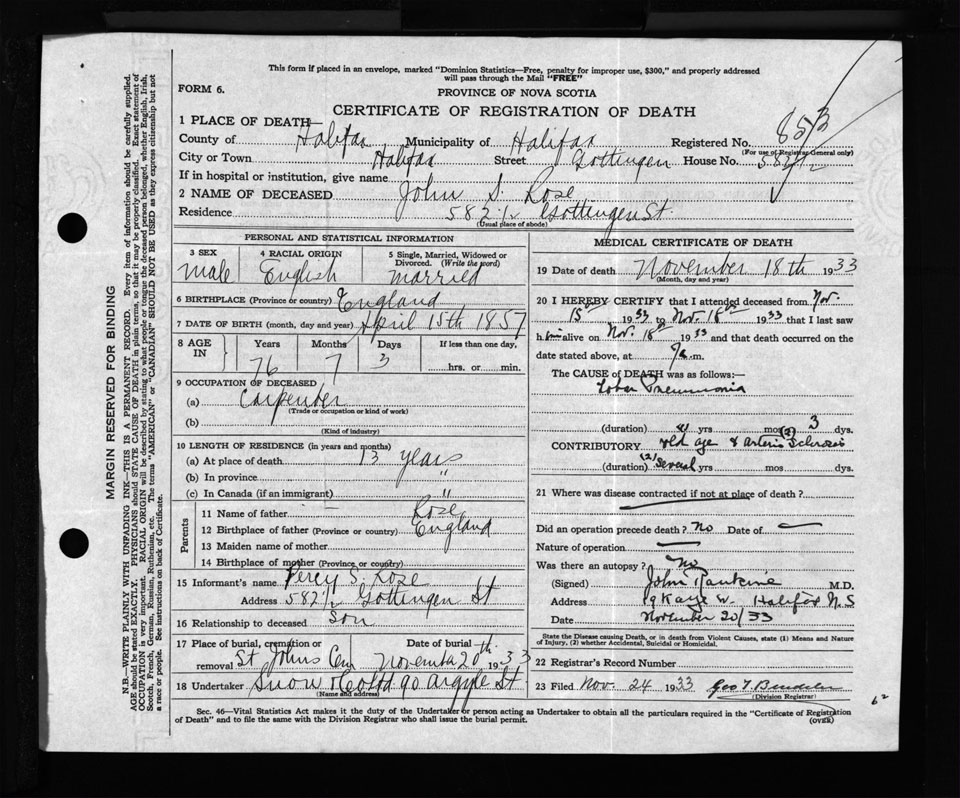 This form if placed in an envelope, marked "Dominion Statistics—Free, penalty for improper use, $300," and properly addressed
will pass through the Mail "FREE"
FORM 6.
PROVINCE OF NOVA SCOTIA
CERTIFICATE OF REGISTRATION OF DEATH
1 PLACE OF DEATH
County of Halifax Municipality of Halifax Registered No. 853
(For use of Registrar General only)
City or Town Halifax Street Gottingen House No. 582 1/2
If in hospital or institution, give name
2 NAME OF DECEASED John S. Rose
Residence 582 1/2 Gottingen St.
(Usual place of abode)
PERSONAL AND STATISTICAL INFORMATION
3 SEX 4 RACIAL ORIGIN 5 Single, Married, Widowed or
Divorced. (Write the word)
male English married
6 BIRTHPLACE (Province or country) England
7 DATE OF BIRTH (month, day and year) April 15th 1857
8 AGE IN Years Months Days If less than one day,
76 7 3 hrs. or min.
9 OCCUPATION OF DECEASED
(a) Carpenter
(Trade or occupation or kind of work)
(b)
(Kind of industry)
10 LENGTH OF RESIDENCE (in years and months)
(a) At place of death 13 years
(b) In province "
(c) In Canada (if an immigrant) "
Parents
11 Name of father Rose
12 Birthplace of father (Province or country) England
13 Maiden name of mother
14 Birthplace of mother (Province or country)
15 Informant's name Percy S. Rose
Address 582 1/2 Gottingen St
16 Relationship to deceased Son
17 Place of burial, cremation or Date of burial
removal St Johns Cem November 20th 1933
18 Undertaker Snow & Co Ltd 90 Argyle St
(Name and address)
MEDICAL CERTIFICATE OF DEATH
19 Date of death November 18th 1933
(Month, day and year)
20 I HEREBY CERTIFY that I attended deceased from Nov.
15th 1933 to Nov. 18th 1933 that I last saw
him alive on Nov. 18th 1933 and that death occurred on the
date stated above, at 9 a.m.
The CAUSE of DEATH was as follows:—
Lobar Pneumonia
(duration) yrs mos 3 dys.
CONTRIBUTORY old age & (2) arterio Sclerosis
(duration) (2) Several yrs mos dys.
21 Where was disease contracted if not at place of death?
Did an operation precede death? No Date of —
Nature of operation —
Was there an autopsy? No
(Signed) John Rankine M.D.
Address Kaye Halifax N.S
Date November 20/33
State the Disease causing Death, or in death from Violent Causes, state (1) Means and Nature
of Injury, (2) whether Accidental, Suicidal or Homicidal.
22 Registrar's Record Number
23 Filed Nov. 24 1933 Geo T
(Division Registrar)
Sec. 46—Vital Statistics Act makes it the duty of the Undertaker or person acting as Undertaker to obtain all the particulars required in the "Certificate of Registration
of Death" and to file the same with the Division Registrar who shall issue the burial permit.
(OVER)
MARGIN RESERVED FOR BINDING
N.B.—WRITE PLAINLY WITH UNFADING INK—THIS IS A PERMANENT RECORD. Every item of information should be carefully supplied.
AGE should be stated EXACTLY. PHYSICIANS should STATE CAUSE OF DEATH in plain terms, so that it may be properly classified. Exact statement of
OCCUPATION is very important. RACIAL ORIGIN will be described by stating to what people or tongue the deceased person belonged, whether English, Irish,
Scotch, French, German, Russian, Ruthenian, etc. The terms "AMERICAN" or "CANADIAN" SHOULD NOT BE USED as they express citizenship but not
a race or people. See instructions on back of Certificate.